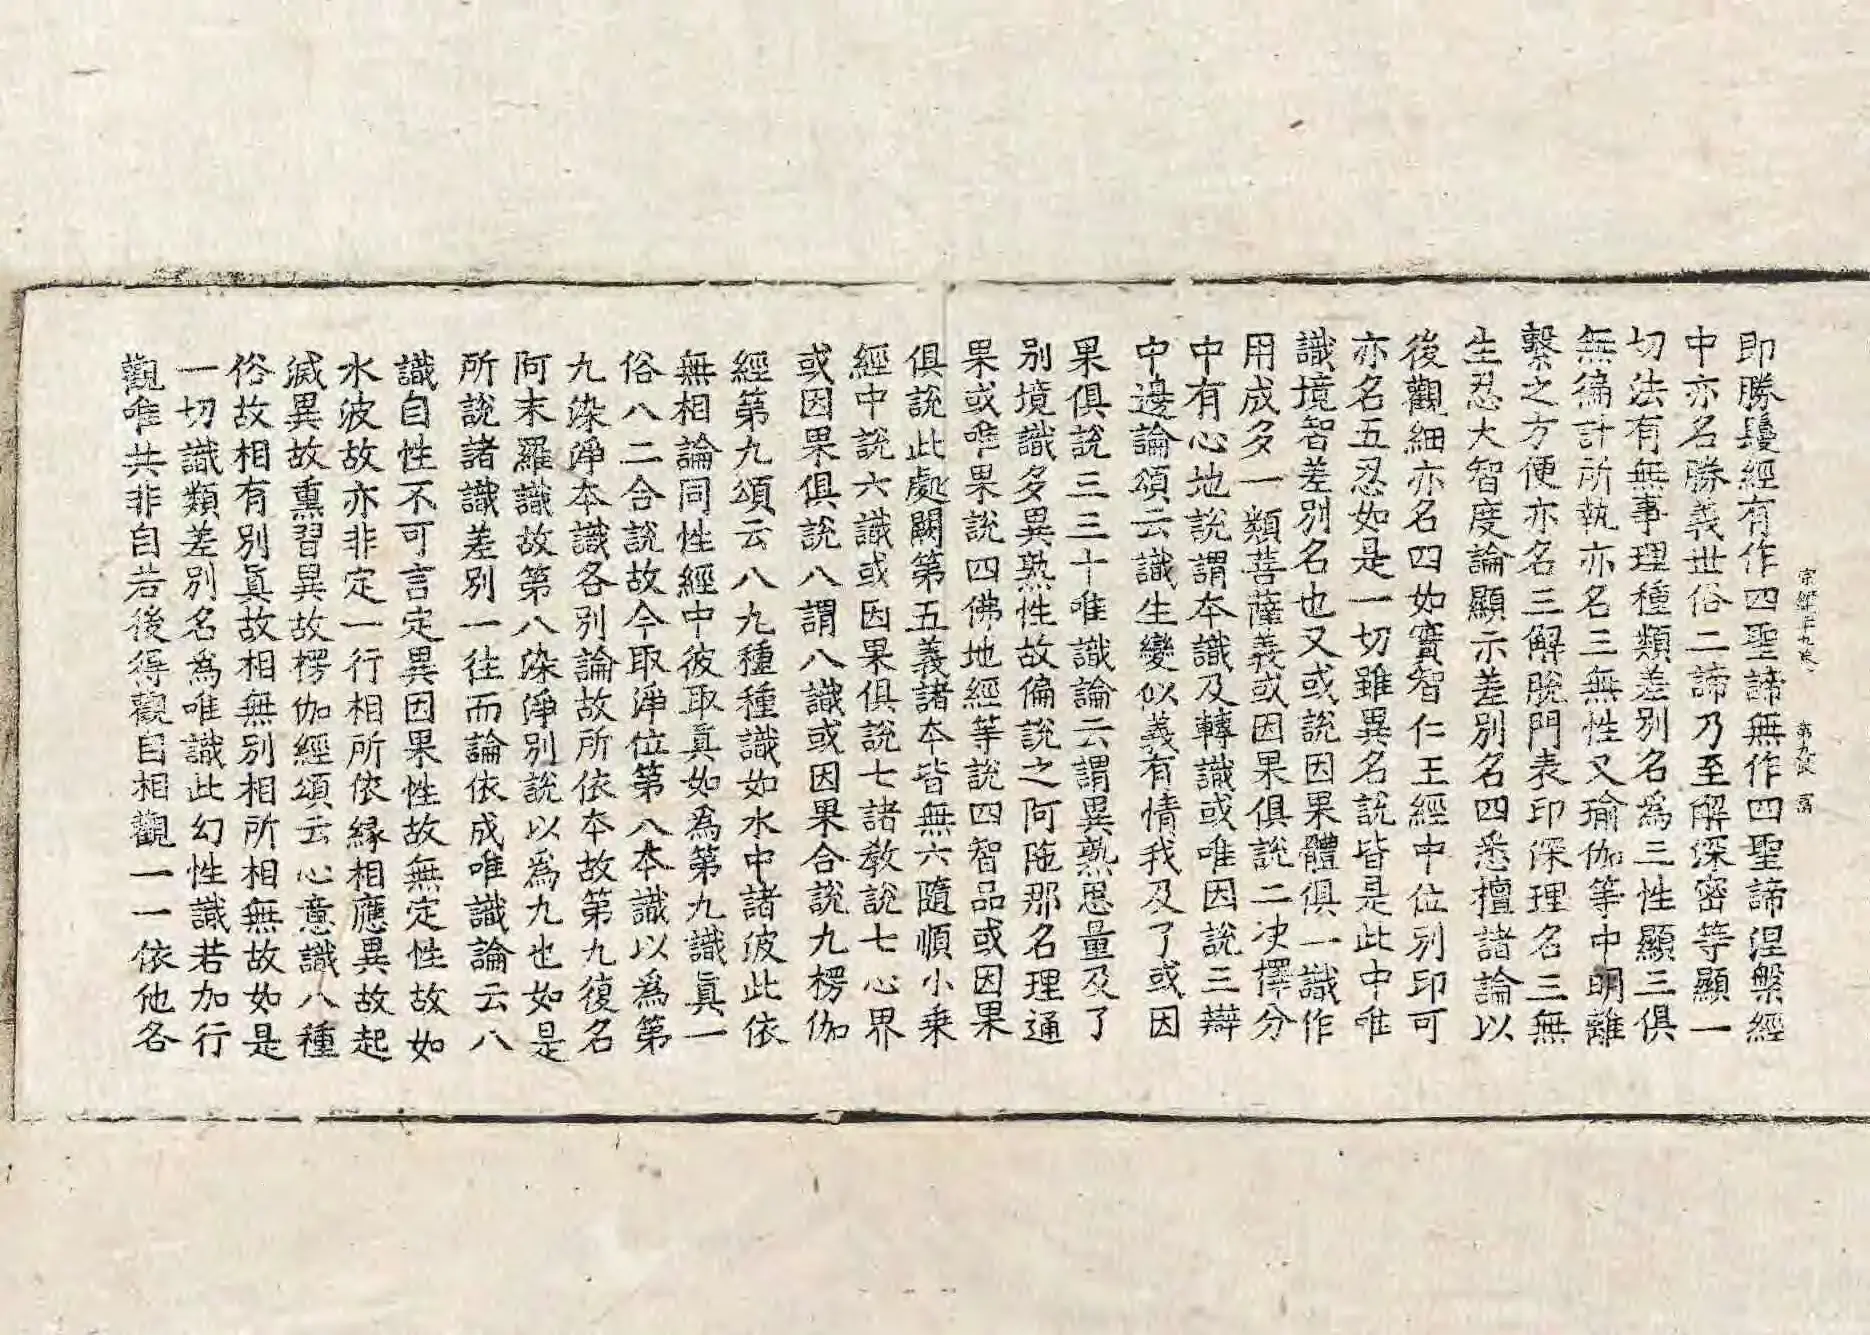 即勝鬘經有作四聖諦無作四聖諦涅槃經
中亦名勝義世俗二諦乃至解深密等顯一
切法有無事理種類差別名爲三性顯三俱
無徧計所執亦名三無性又瑜伽等中明離
繫之方便亦名三解脫門表印深理名三無
生忍大智度論顯示差別名四悉檀諸論以
後觀細亦名四如實智仁王經中位別印可
亦名五忍如是一切雖異名說皆是此中唯
識境智差別名也又或說因果體俱一識作
用成多一類菩薩義或因果俱說二决擇分
中有心地說謂本識及轉識或唯因說三辯
中邊論頌云識生變似義有情我及了或因
果俱說三三十唯識論云謂異熟思量及了
別境識多異熟性故偏說之阿陁那名理通
果或唯果說四佛地經等說四智品或因果
俱說此處闕第五義諸本皆無六隨順小乘
經中說六識或因果俱說七諸教說七心界
或因果俱說八謂八識或因果合說九楞伽
經第九頌云八九種種識如水中諸波此依
無相論同性經中彼取眞如為第九識眞一
俗八二合說故今取淨位第八本識以為第
九染淨本識各別論故所依本故第九復名
阿末羅識故第八染淨別說以為九也如是
所說諸識差別一往而論依成唯識論云八
識自性不可言定異因果性故無定性故如
水波故亦非定一行相所依緣相應異故起
滅異故熏習異故楞伽經頌云心意識八種
俗故相有別眞故相無別相所相無故如是
一切識類差別名爲唯識此幻性識若加行
觀唯共非自若後得觀自相觀一一依他各